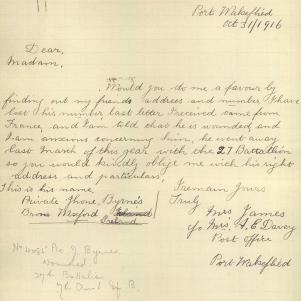 Port Wakefield
Oct 31/1916
Dear,
Madam,
Would you do me a favour by
finding out my friends address and number I have
lost his number last letter I received came from
France, and I am told that he is wounded and
I am anxious concerning him, he went away
last March of this year with the 27 Battallion
so you would kindly oblige me with his right
address and particulars,
This is his name
Private Thone, Byrne's
Wexford
Ireland
I remain Yours
Truly
Mrs James
c/o Mrs. A. E. Davey
Post Office
Port Wakefield
Pte J Byrnes
Wounded
27th Battalion